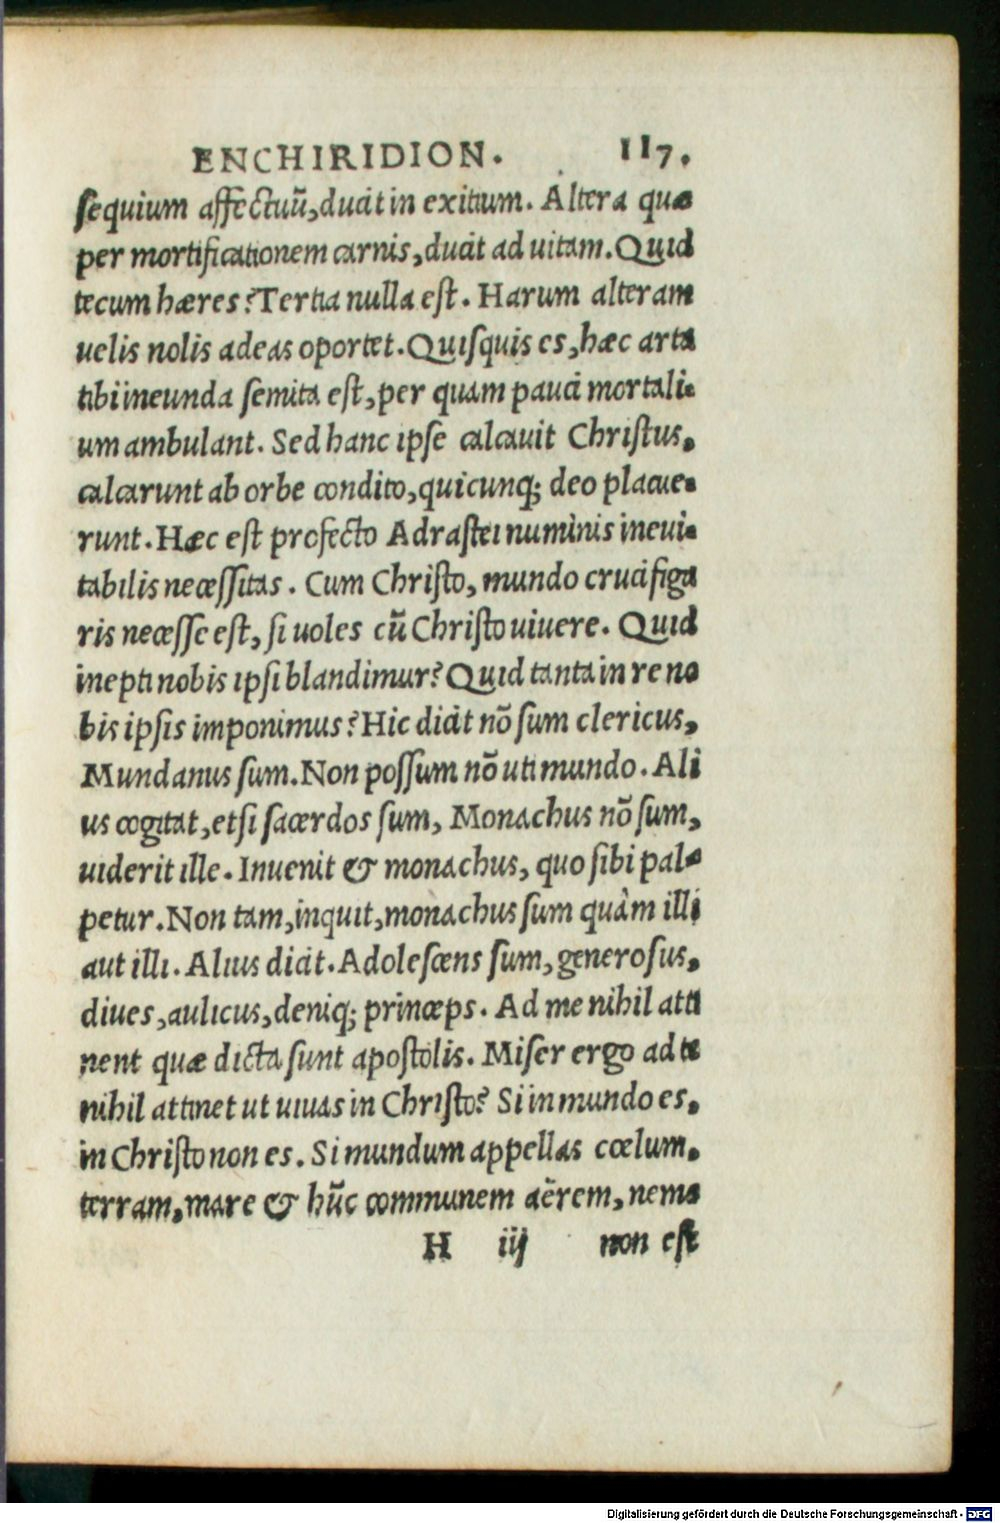 ENCHIRIDION. 117.
ſequium affectuũ, ducit in exitium. Altera quæ
per mortificationem carnis, ducit ad uitam. Quid
tecum hæres? Tertia nulla eſt. Harum alteram
uelis nolis adeas oportet. Quiſquis es, hæc arta
tibi ineunda ſemita eſt, per quam pauci mortali-
um ambulant. Sed hanc ipſe calcauit Chriſtus,
calcarunt ab orbe condito, quicunq; deo placue-
runt. Hæc eſt profecto Adraſtei numinis ineui-
tabilis neceſſitas. Cum Chriſto, mundo crucifiga
ris neceſſe eſt, ſi uoles cũ Chriſto uiuere. Quid
inepti nobis ipſi blandimur? Quid tanta in re no
bis ipſis imponimus? Hic dicit nõ ſum clericus,
Mundanus ſum. Non poſſum nõ uti mundo. Ali
us cogitat, etſi ſacerdos ſum, Monachus nõ ſum,
uiderit ille. Inuenit & monachus, quo ſibi pal-
petur. Non tam, inquit, monachus ſum quàm illi
aut illi. Alius dicit. Adoleſcens ſum, generoſus,
diues, aulicus, deniq; princeps. Ad me nihil atti
nent quæ dicta ſunt apoſtolis. Miſer ergo ad te
nihil attinet ut uiuas in Chriſto? Si in mundo es,
in Chriſto non es. Si mundum appellas cœlum,
terram, mare & hũc communem aërem, nemo
H iij non eſt
Digitalisierung gefördert durch die Deutsche Forschungsgemeinschaft - DFG